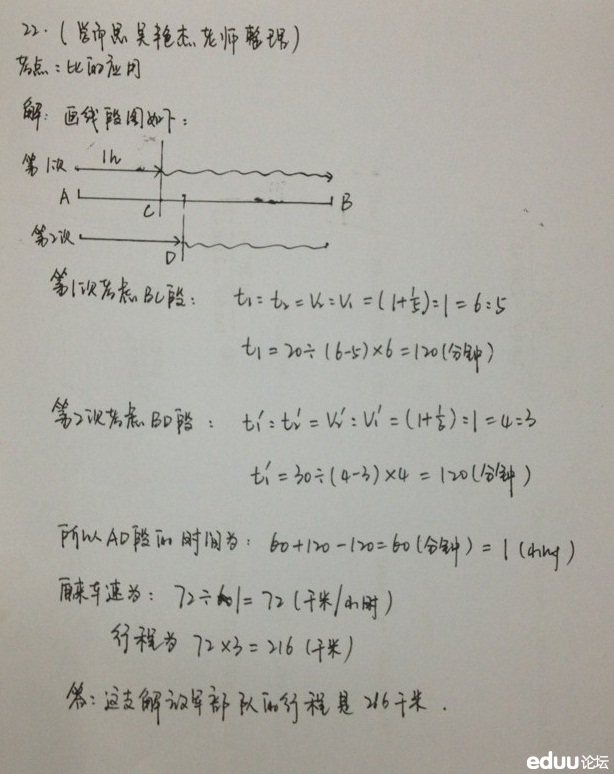 22.(学而思吴艳杰老师整理)
考点:比的应用
解:画线段图如下:
第1次 1h
A C B
第2次 D
第1次考虑BC段: t₁:t₂=V₂:V₁=(1+1/5):1=6:5
t₁=20÷(6-5)×6=120(分钟)
第2次考虑BD段: t₁′:t₂′=V₂′:V₁′=(1+1/3):1=4:3
t₁′=30÷(4-3)×4=120(分钟)
所以AD段的时间为: 60+120-120=60(分钟)=1(小时)
原来车速为: 72÷1=72(千米/小时)
行程为 72×3=216(千米)
答:这支解放军部队的行程是216千米.
eduu论坛